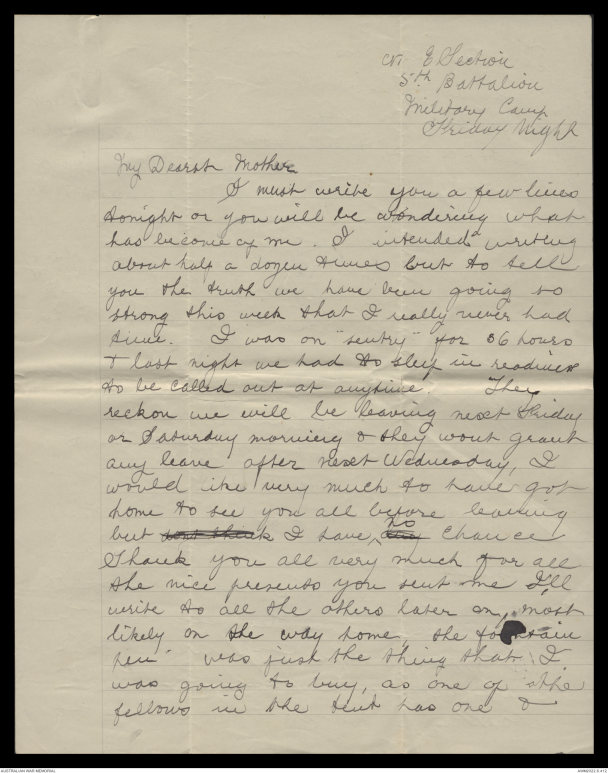 E Section
5th Battalion
Military Camp
Friday Night
My Dearest Mother
I must write you a few lines
tonight or you will be wondering what
has become of me. I intended writing
about half a dozen times but to tell
you the truth we have been going so
strong this week that I really never had
time. I was on "sentry" for 36 hours
& last night we had to sleep in readiness
to be called out at anytime. They
reckon we will be leaving next Friday
or Saturday morning & they wont grant
any leave after next Wednesday, I
would like very much to have got
home to see you all before leaving
but dont think I have any no chance
Thank you all very much for all
the nice presents you sent me I'll
write to all the others later on, most
likely on the way home, the fountain
pen" was just the thing that I
was going to buy, as one of the
fellows in the tent has one &
AUSTRALIAN WAR MEMORIAL